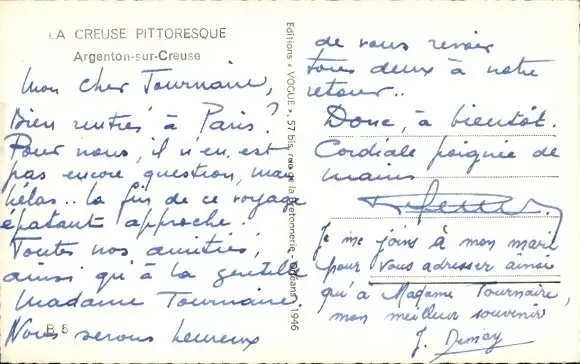 LA CREUSE PITTORESQUE
Argenton-sur-Creuse
Mon cher Tournaire,
Bien rentrés à Paris?
Pour nous, il n'en est
pas encore question, mais
hélas.. la fin de ce voyage
épatant approche.
Toutes nos amitiés,
ainsi qu'à la gentille
Madame Tournaire.
Nous serons heureux
B 5
Editions « VOGUE », 57 bis, rue de la Bretonnerie - Orléans 1946
de vous revoir
tous deux à notre
retour..
Donc, à bientôt.
Cordiale poignée de
mains
Je me joins à mon mari
pour vous adresser ainsi
qu'à Madame Tournaire,
mon meilleur souvenir
J.